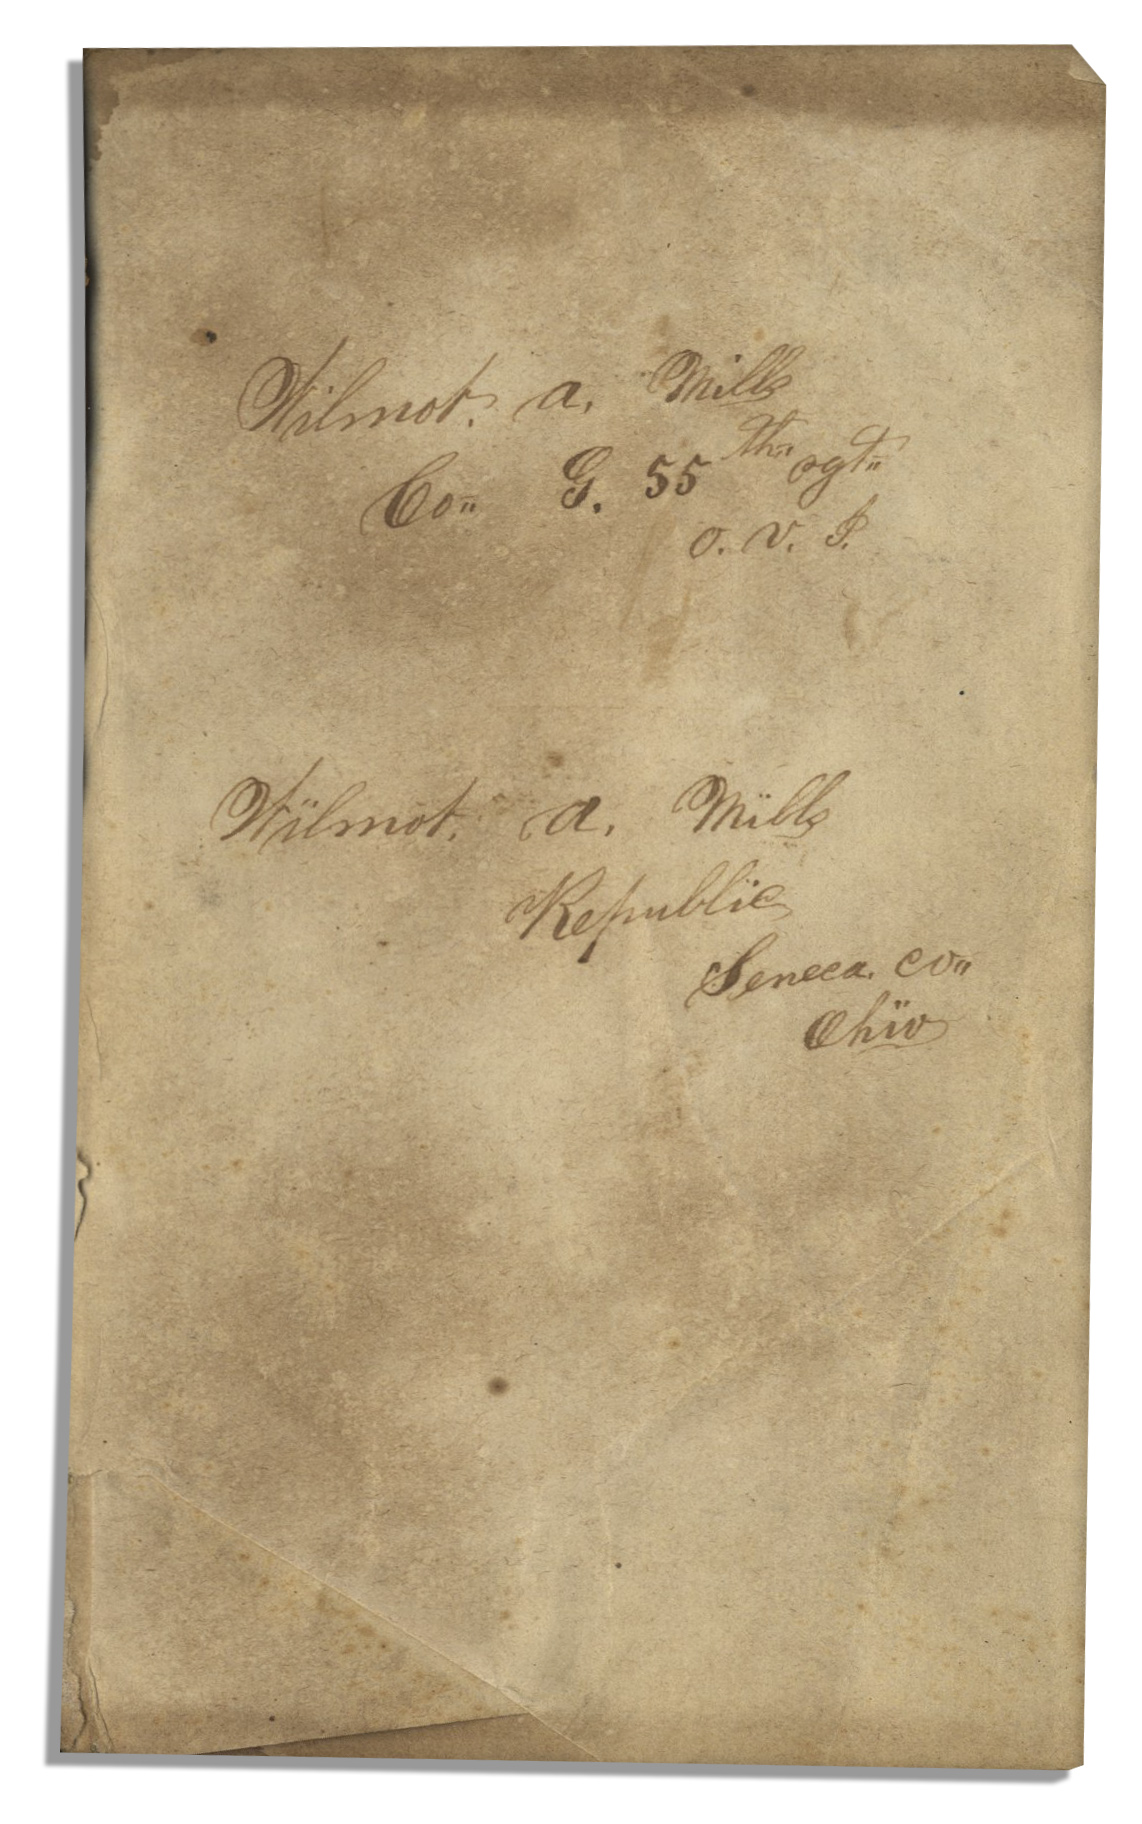 Wilmot. A. Mills
Co" G. 55th" rgt"
O. V. I.
Wilmot. A. Mills
Republic
Seneca. Co"
Ohio